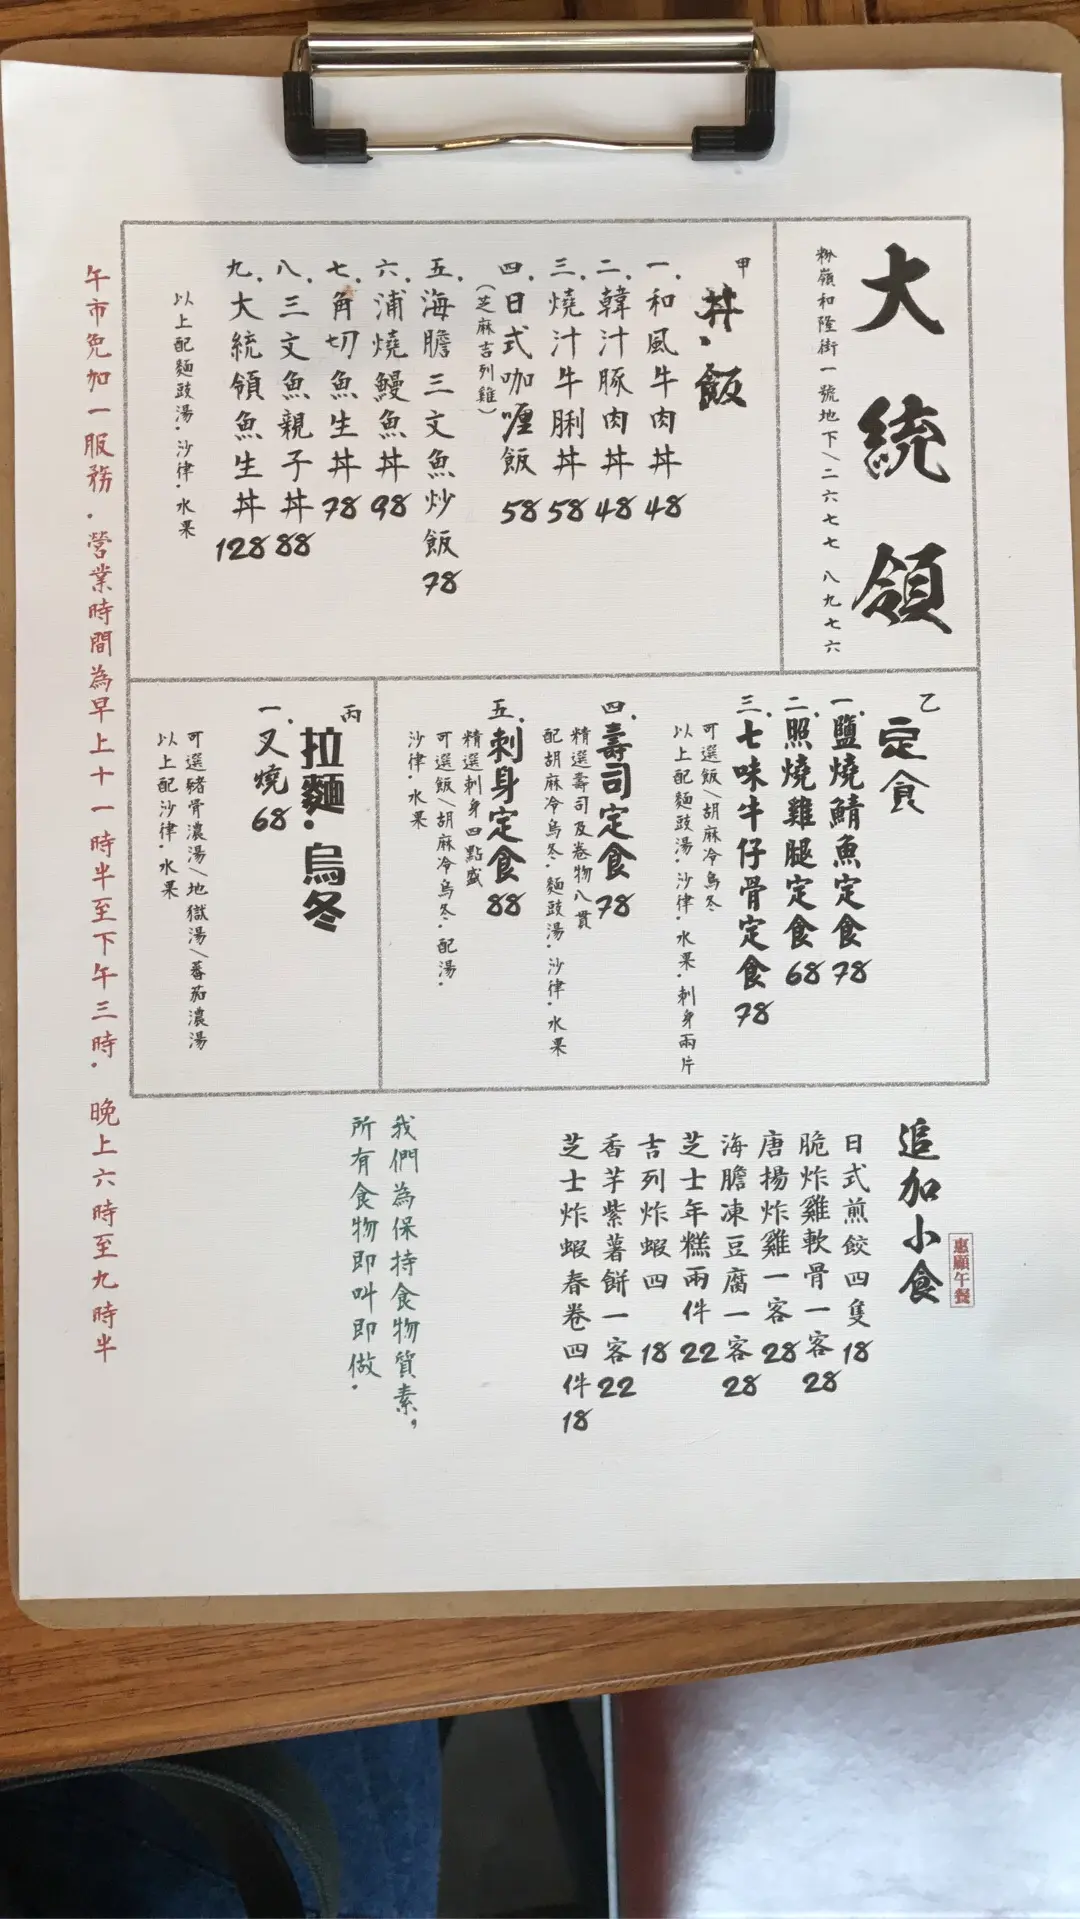 大統領
粉嶺和隆街一號地下/二六七七 八九七六
甲
丼·飯
一.和風牛肉丼48
二.韓汁豚肉丼48
三.燒汁牛脷丼58
四.日式咖喱飯58
(芝麻吉列雞)
五.海膽三文魚炒飯78
六.浦燒鰻魚丼98
七.角切魚生丼78
八.三文魚親子丼88
九.大統領魚生丼128
以上配麵豉湯.沙律.水果
乙
定食
一.鹽燒鯖魚定食78
二.照燒雞腿定食68
三.七味牛仔骨定食78
可選飯/胡麻冷烏冬
以上配麵豉湯.沙律.水果.刺身兩片
四.壽司定食78
精選壽司及卷物八貫
配胡麻冷烏冬.麵豉湯.沙律.水果
五.刺身定食88
精選刺身四點盛
可選飯/胡麻冷烏冬.配湯.
沙律.水果
丙
拉麵·烏冬
一.叉燒68
可選豬骨濃湯/地獄湯/蕃茄濃湯
以上配沙律.水果
惠顧午餐
追加小食
日式煎餃四隻18
脆炸雞軟骨一客28
唐揚炸雞一客28
海膽凍豆腐一客28
芝士年糕兩件22
吉列炸蝦四 18
香芋紫薯餅一客22
芝士炸蝦春卷四件18
我們為保持食物質素，
所有食物即叫即做.
午市免加一服務.營業時間為早上十一時半至下午三時. 晚上六時至九時半